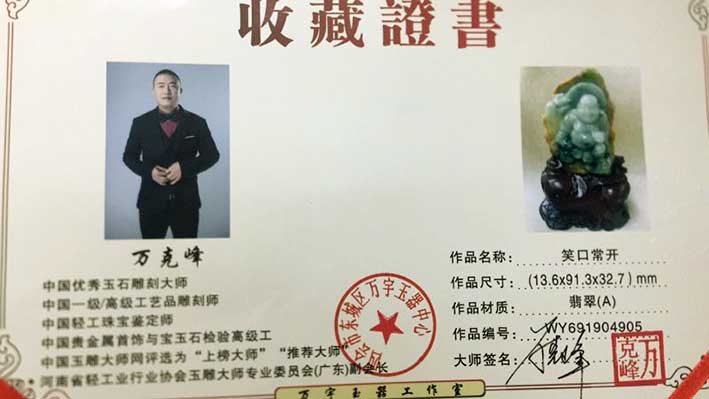 收藏證書
万克峰
中国优秀玉石雕刻大师
中国一级/高级工艺品雕刻师
中国轻工珠宝鉴定师
中国贵金属首饰与宝玉石检验高级工
中国玉雕大师网评选为“上榜大师” “推荐大师”
·河南省轻工业行业协会玉雕大师专业委员会(广东)副会长
四会市东城区万字玉器中心
作品名称： 笑口常开
作品尺寸： (13.6x91.3x32.7) mm
作品材质： 翡翠(A)
作品编号： WY691904905
大师签名： 万克峰
万克峰
万字玉器工作室